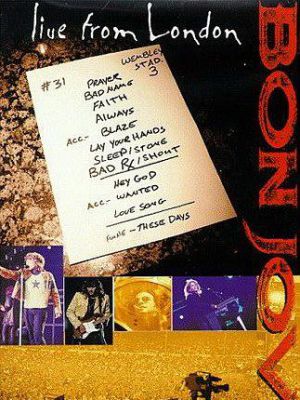 live from London
WEMBLEY
STAD.
3
#31
PRAYER
BAD NAME
FAITH
ALWAYS
ACC- BLAZE
LAY YOUR HANDS
SLEEP/STONE
BAD RX/SHOUT
HEY GOD
ACC- WANTED
LOVE SONG
- THESE DAYS
BON JOVI